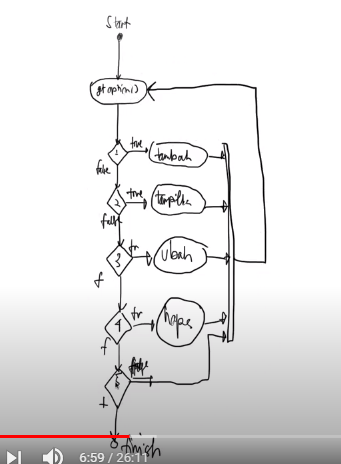 Start
getoption()
1
true
tambah
false
2
true
tampilkan
false
3
tr
Ubah
f
4
tr
hapus
f
t
finish
6:59 / 26:11